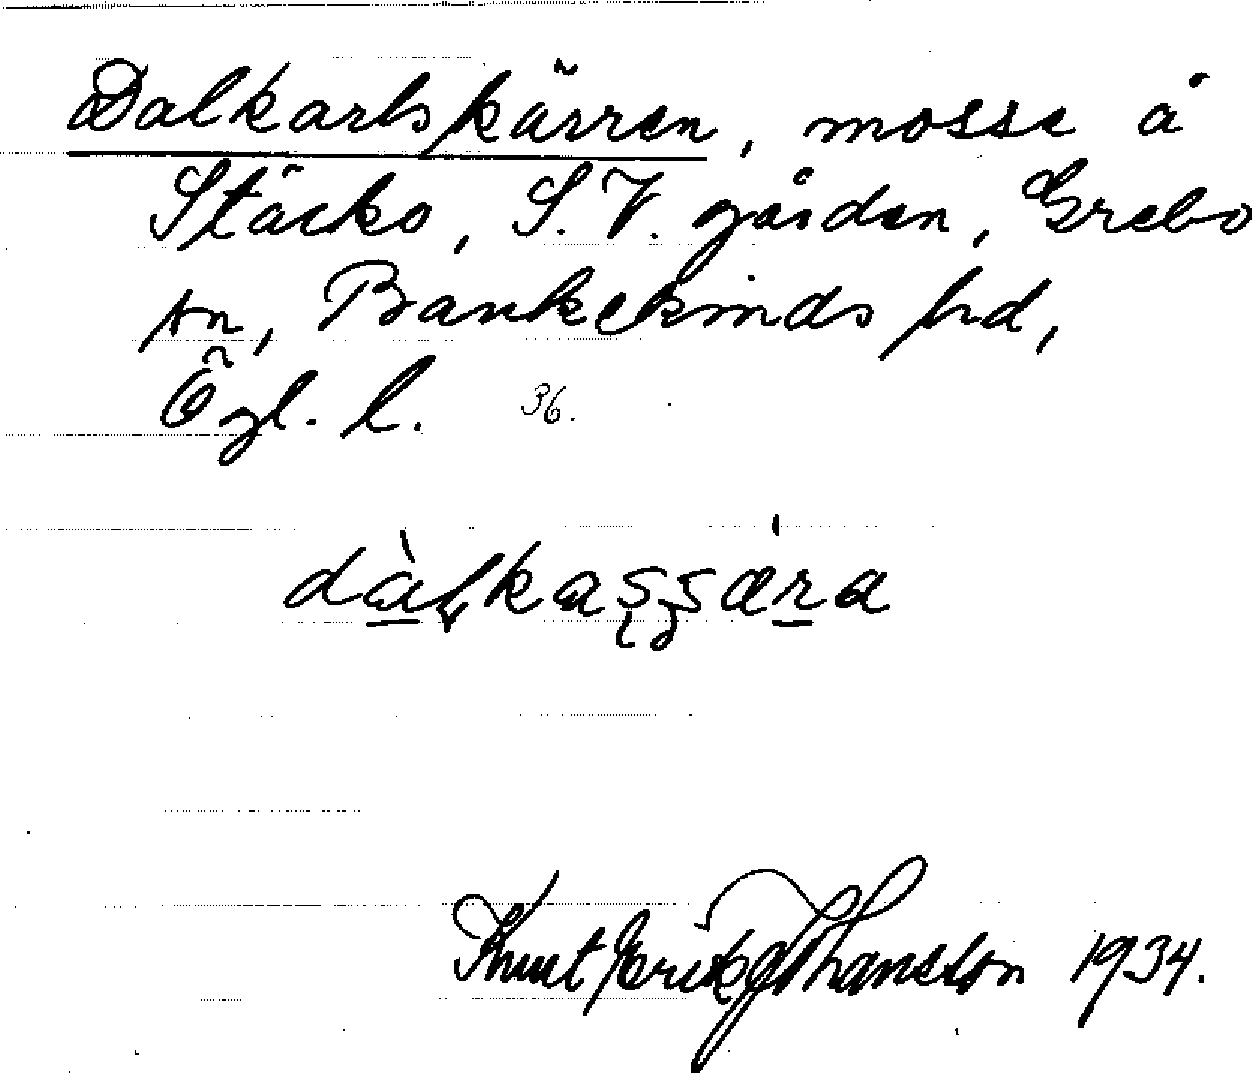 Dalkarlskärren, mosse å
Stäcko, S.V. gården, Grebo
sn, Bankekinds hd,
Ögl. l. 36.
Knut Erik Johansson 1934.